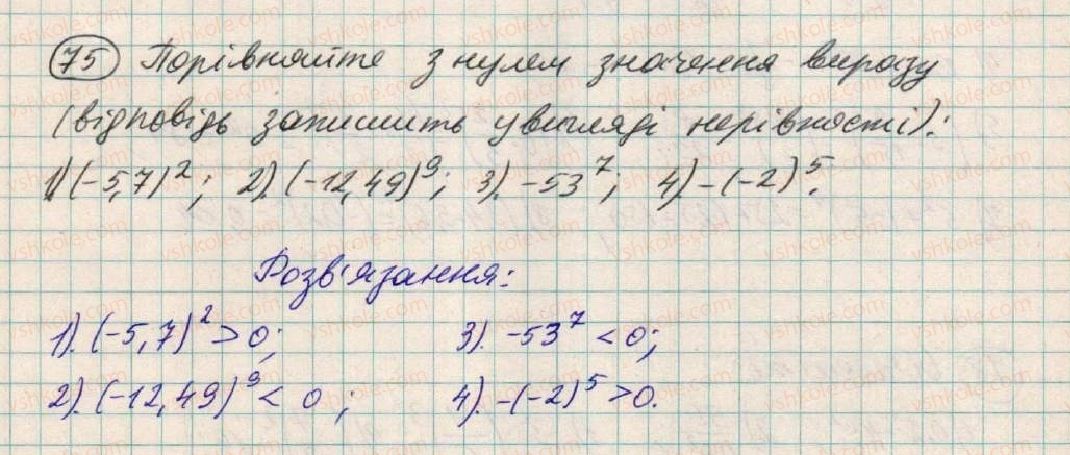 75 Порівняйте з нулем значення виразу
(відповідь запишіть у вигляді нерівності):
1) (-5,7)²; 2). (-12,49)⁹; 3). -53⁷; 4). -(-2)⁵.
Розв'язання:
1). (-5,7)² > 0; 3). -53⁷ < 0;
2). (-12,49)⁹ < 0; 4). -(-2)⁵ > 0.